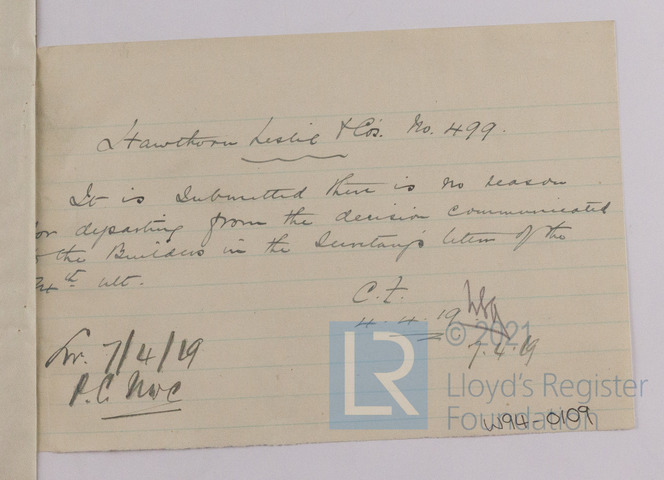 Hawthorn Leslie & Co's. No. 499.
It is submitted there is no reason
for departing from the decision communicated
to the Builders in the Secretary's letter of the
ult.
C.F.
4.4.19
7.4.19
7/4/19
P.C. Nwc
LR
© 2021
Lloyd's Register
Foundation
W94-0109